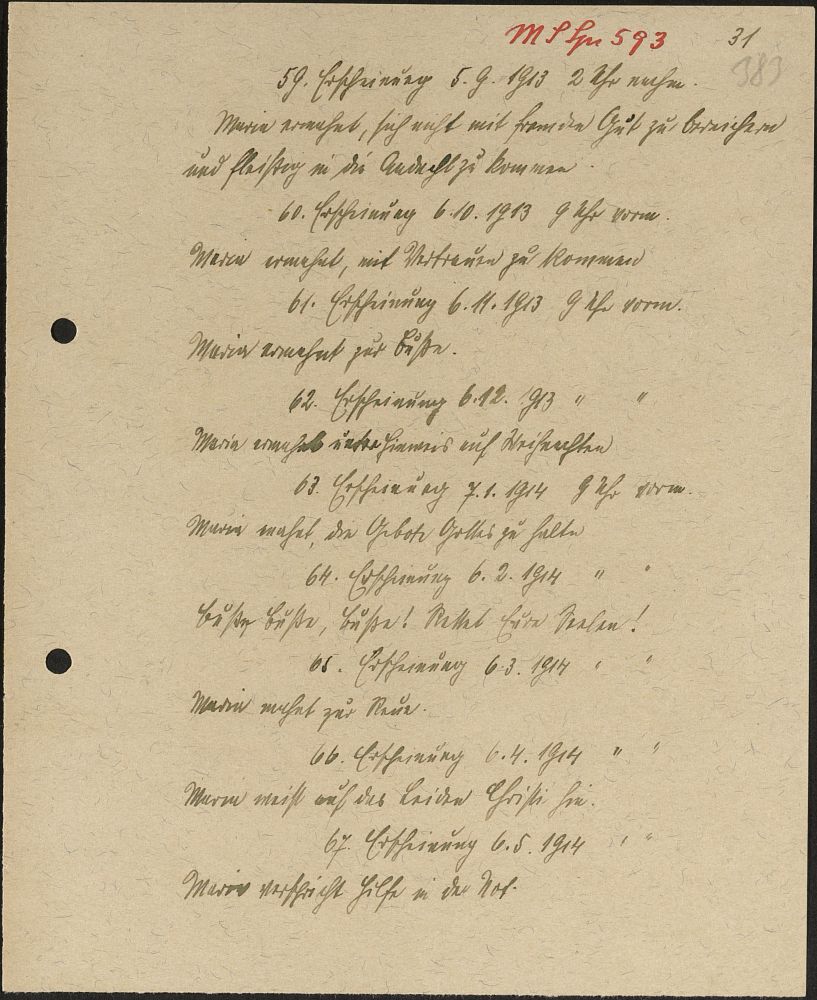 593 31
383
59. Erscheinung 5. 9. 1913 2 Uhr nachm.
Maria ermahnt, sich nicht mit fremden Gut zu bereichern
und fleißig in die Andacht zu kommen.
60. Erscheinung 6. 10. 1913 9 Uhr vorm.
Maria ermahnt, mit Vertrauen zu kommen
61. Erscheinung 6. 11. 1913 9 Uhr vorm.
Maria ermahnt zur Buße.
62. Erscheinung 6. 12. 1913 " "
Maria ermahnt unter Hinweis auf Weihnachten
63. Erscheinung 7. 1. 1914 9 Uhr vorm.
Maria mahnt, die Gebote Gottes zu halten
64. Erscheinung 6. 2. 1914 " "
Buße, Buße, Buße! Rettet Eure Seelen!
65. Erscheinung 6. 3. 1914 " "
Maria mahnt zur Reue.
66. Erscheinung 6. 4. 1914 " "
Maria weist auf das Leiden Christi hin.
67. Erscheinung 6. 5. 1914 " "
Maria verspricht Hilfe in der Not.